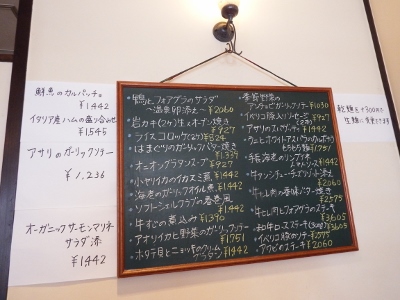 鮮魚のカルパッチョ
¥1442
イタリア産ハムの盛り合わせ
¥1,545
アサリのガーリックソテー
¥1,236
オーガニックサーモンマリネ
サラダ添
¥1442
フォアグラのサラダ
〜温泉卵添え ¥2060
岩カキ(2ヶ)生orオーブン焼き
¥927
ライスコロッケ(2ヶ)¥824
はまぐりのガーリックバター焼き
¥1339
オニオングラタンスープ ¥927
小ヤリイカのイカスミ煮 ¥1442
海老のガーリックオイル煮 ¥1442
ソフトシェルクラブの春巻風
¥1442
牛すじの煮込み ¥1390
アオリイカと野菜のガーリックソテー
¥1751
ホタテ貝とニョッキのクリーム
グラタン ¥1442
季節野菜の
アンチョビガーリックソテー ¥1030
イベリコ豚入りソーセージ
¥927
アサリのスパゲッティ ¥1442
¥1751
手長海老のリングイネ
トマトソース ¥1442
¥2060
¥2575
牛ヒレ肉とフォアグラのステーキ
¥3605
和牛ロースステーキ
¥3605
イベリコ豚のソテー ¥2575
アワビのステーキ ¥2060